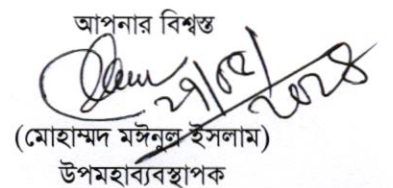 আপনার বিশ্বস্ত
২৭/০৫/২০২৪
(মোহাম্মদ মঈনুল ইসলাম)
উপমহাব্যবস্থাপক